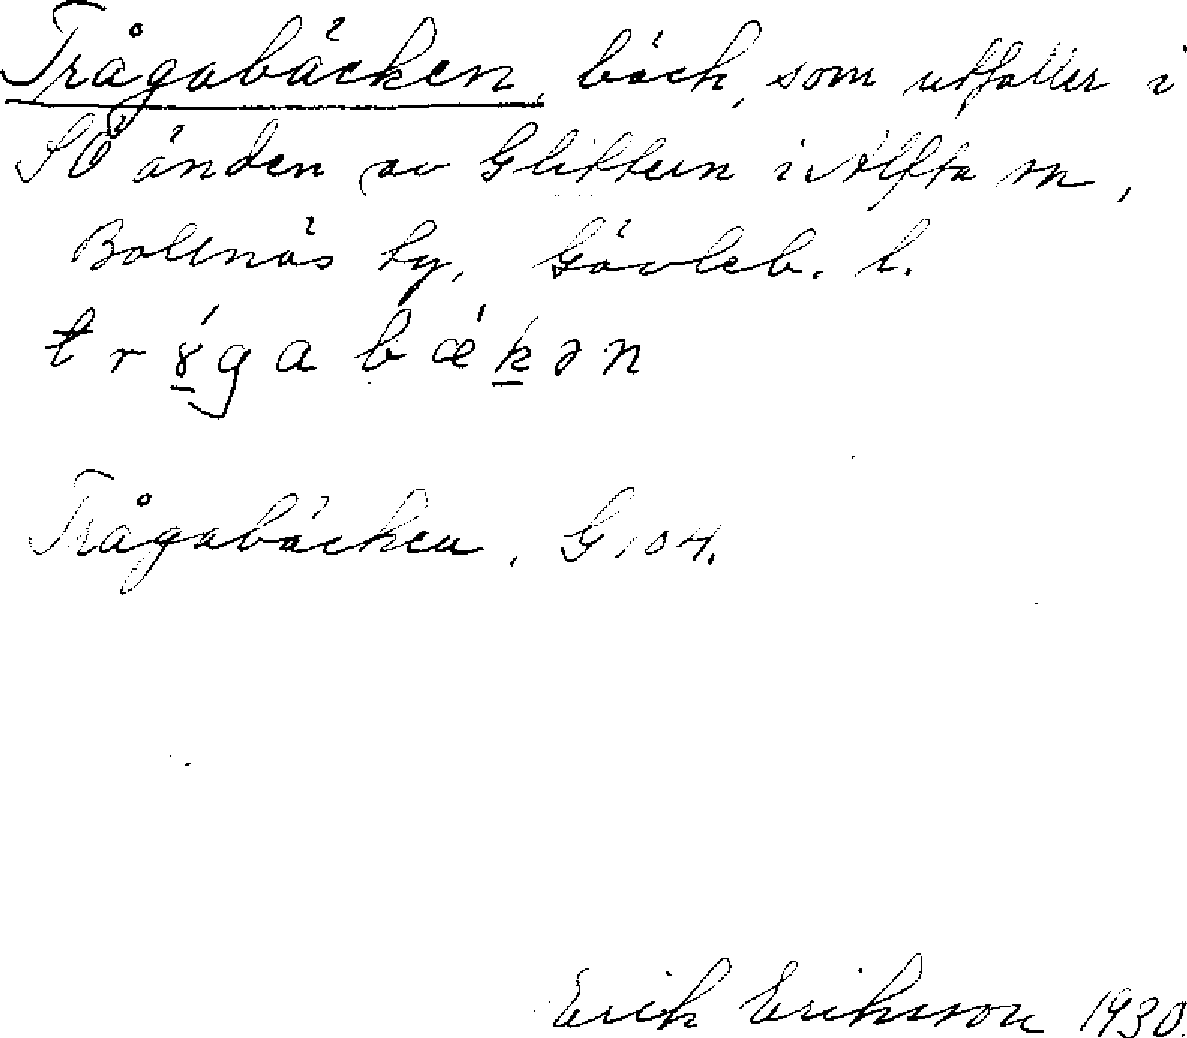 Trågabäcken, bäck, som utfaller i
SÖ änden av Glittern i Alfta sn,
Bollnäs tg, Gävleb. l.
trɤ́gabǽkən
Trågabäcken, G 104.
Erik Eriksson 1930.